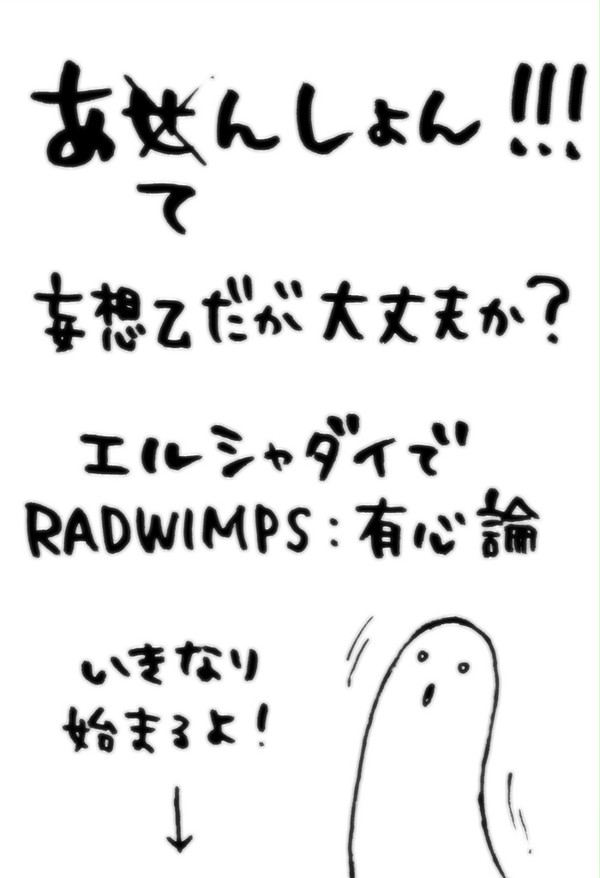 あせんしょん!!!
て
妄想乙だが大丈夫か?
エルシャダイで
RADWIMPS:有心論
いきなり
始まるよ!
↓